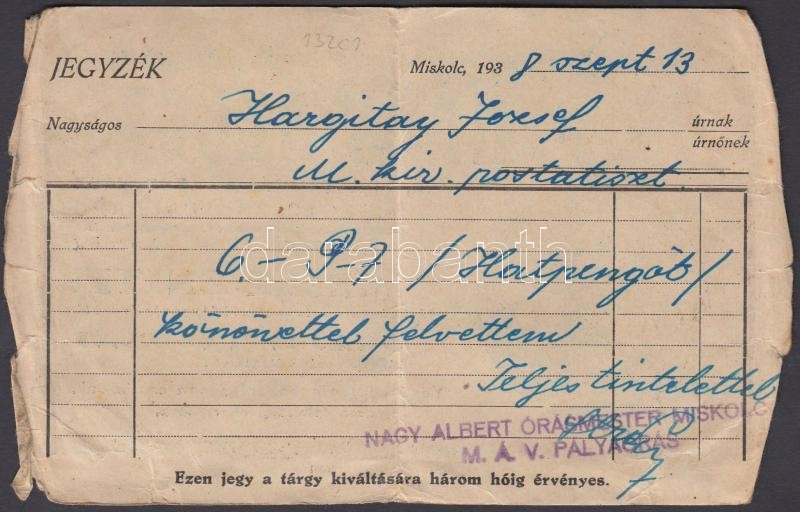 132c1
JEGYZÉK
Miskolc, 193 8 szept 13
Nagyságos Hargitay Jozsef úrnak
úrnőnek
M. kir. postatiszt
6.– P-t /Hatpengőt/
darabanth
köszönettel felvettem
Teljes tisztelettel
NAGY ALBERT ÓRÁSMESTER MISKOLC
M. Á. V. PÁLYAÓRÁS
Ezen jegy a tárgy kiváltására három hóig érvényes.